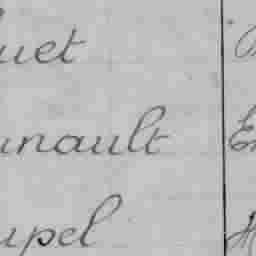 uet
unault E
upel H